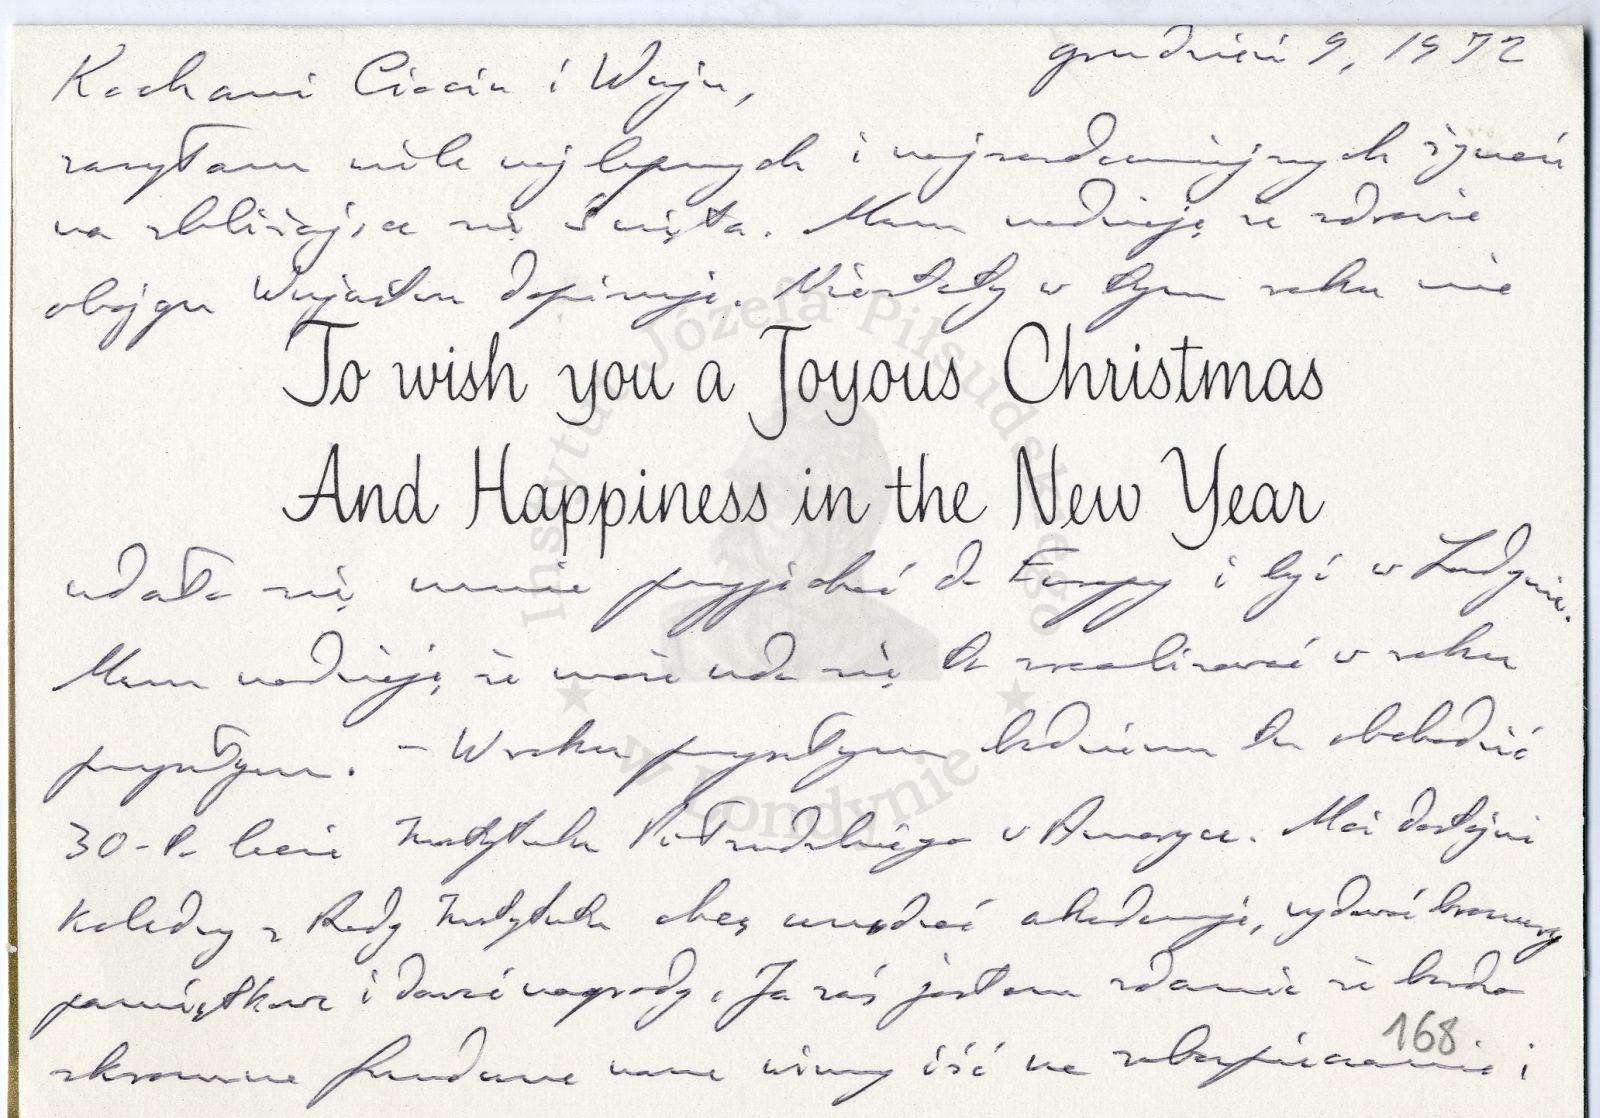 grudzień 9, 1972
Kochani Ciociu i Wuju,
zasyłam wiele najlepszych i najserdeczniejszych życzeń
na zbliżające się Święta. Mam nadzieję że zdrowie
obojgu Wujostwu dopisuje. Niestety w tym roku nie
To wish you a Joyous Christmas
And Happiness in the New Year
udało się mnie przyjechać do Europy i być w Londynie.
Mam nadzieję, że może uda się to zrealizować w roku
przyszłym. – W roku przyszłym będziemy tu obchodzić
30-to lecie Instytutu Piłsudskiego w Ameryce. Moi dostojni
koledzy z Rady Instytutu chcą urządzać akademję, wydawać broszury
pamiątkowe i dawać nagrody. Ja zaś jestem zdania że bardzo
skromne fundusze nasze winny iść na zabezpieczenie i
168
Instytut Józefa Piłsudskiego
w Londynie